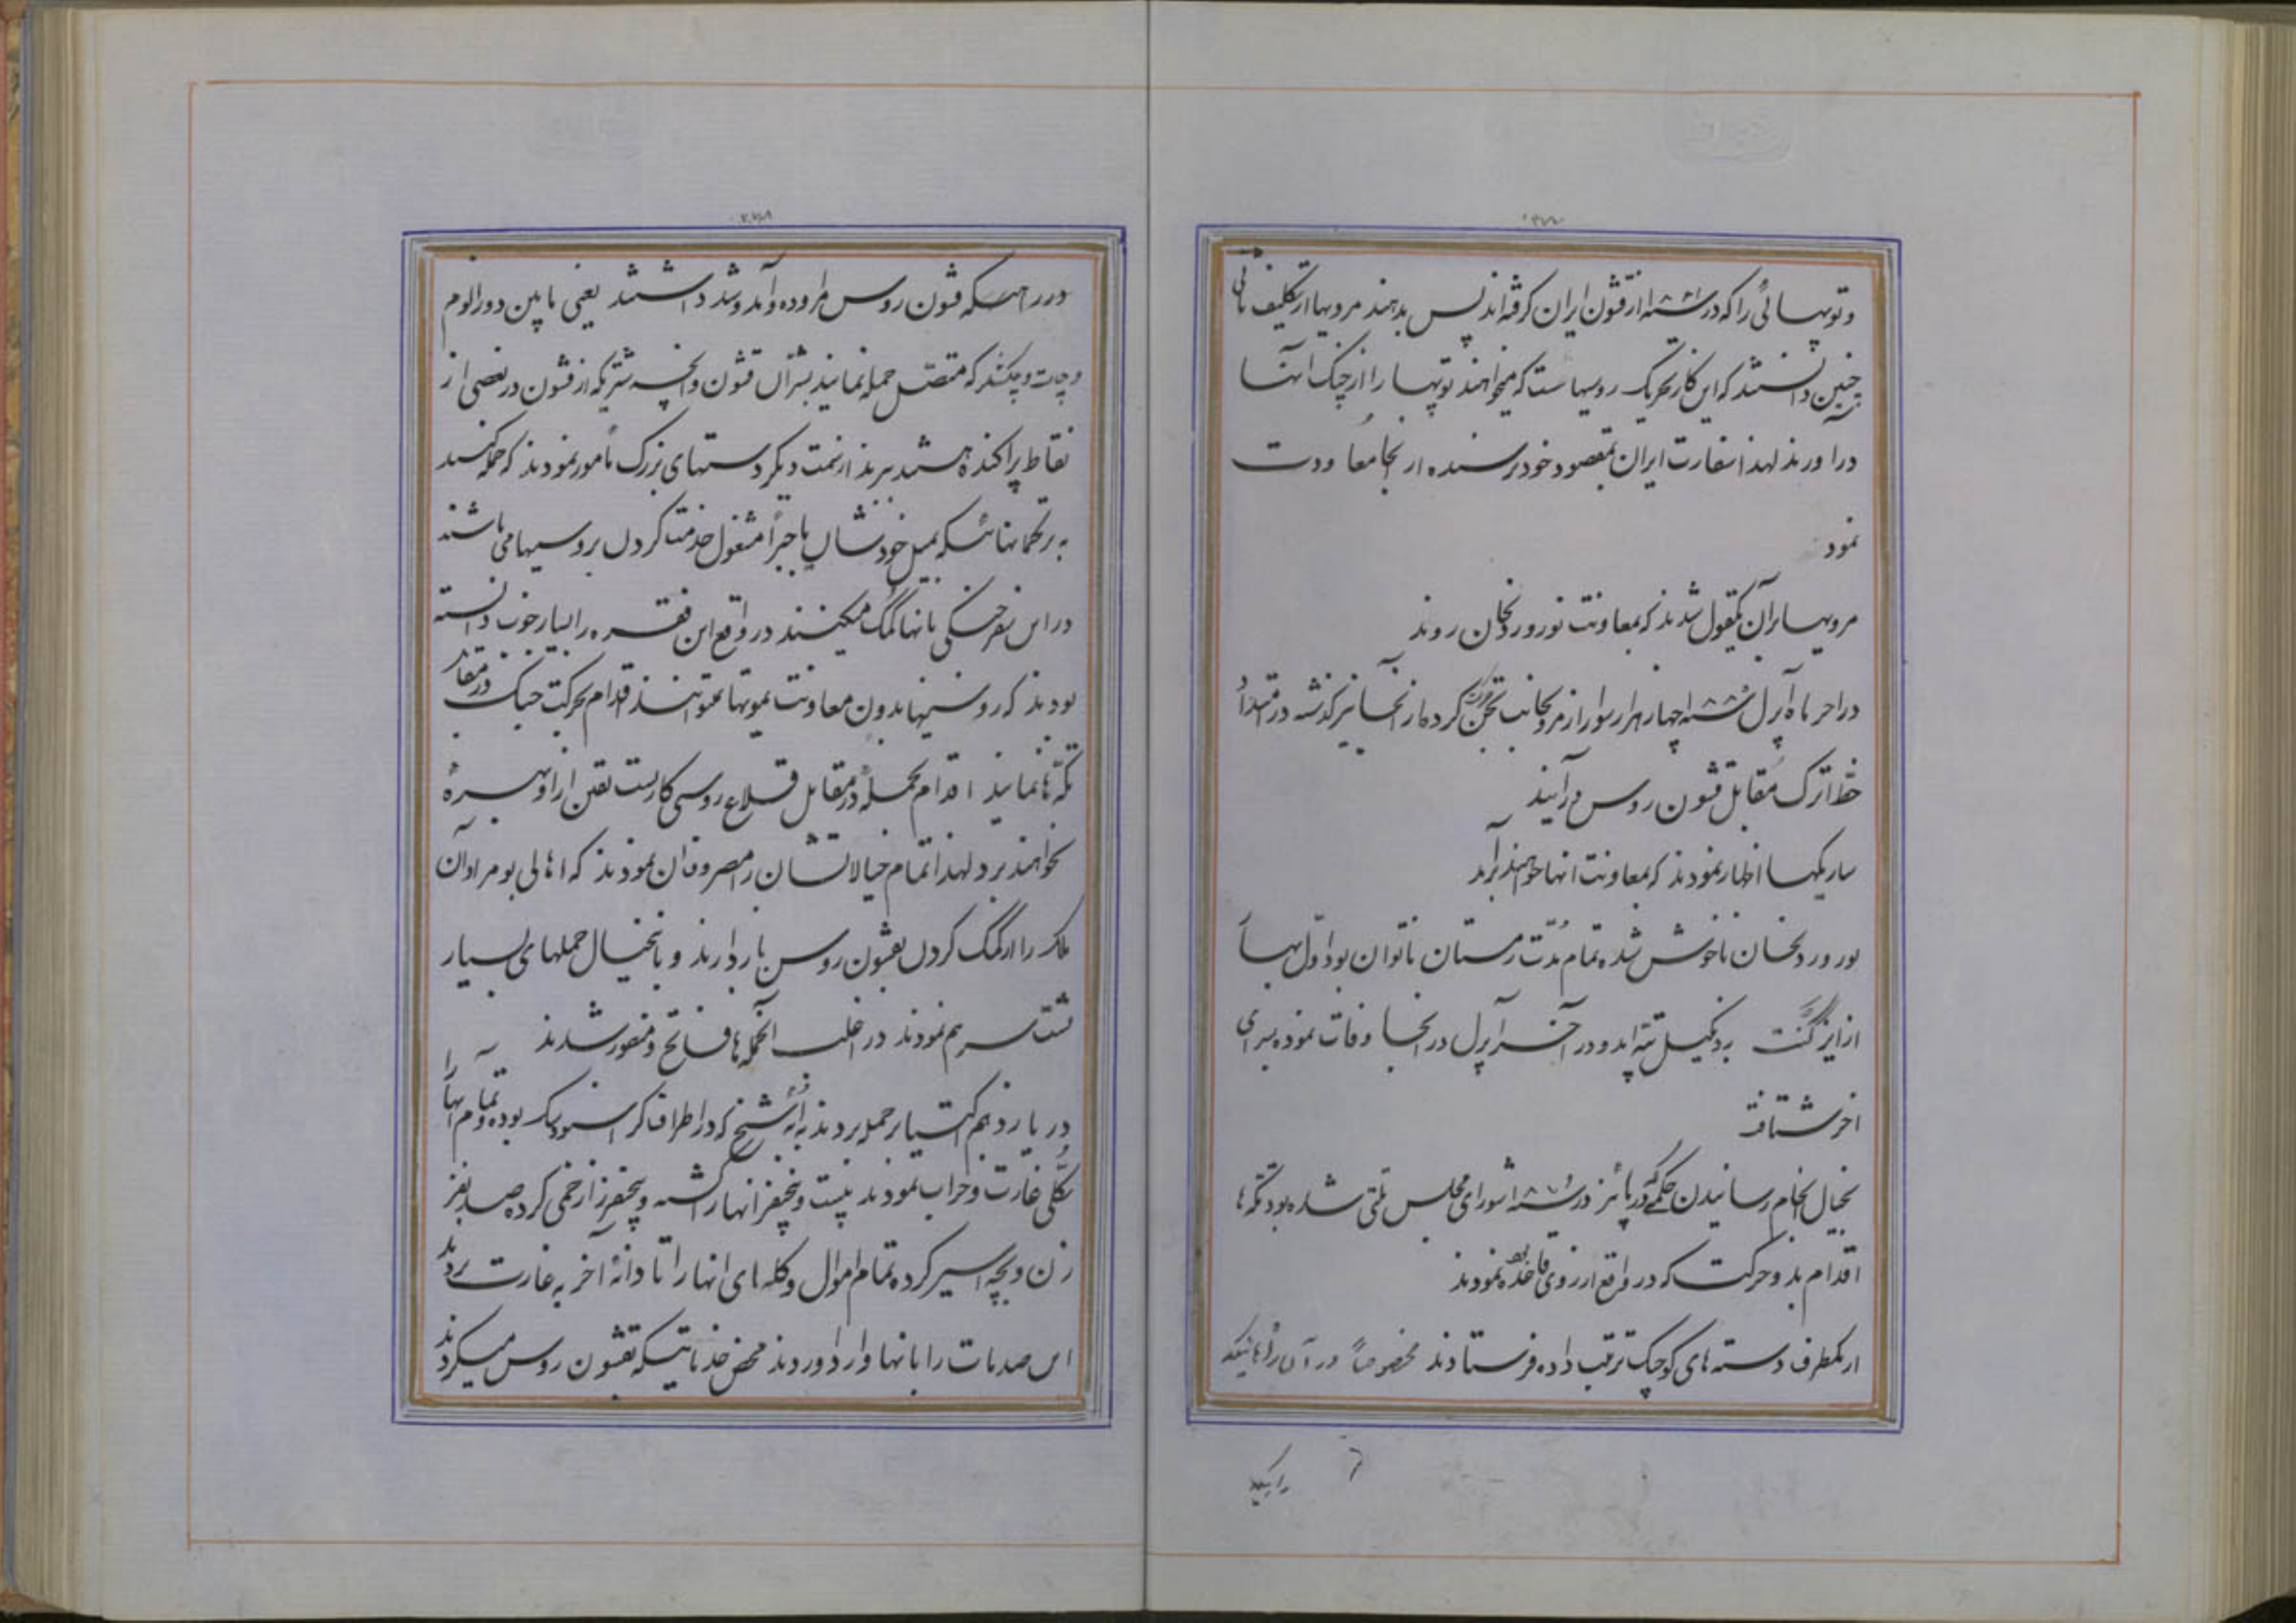 و توپهائی را که در سنه ۱۸۸۰ از قشون ایران گرفته‌اند پس بدهند مرویها از تکلیف ثانی
چنین دانستند که این کار تحریک روسیها است که میخواهند توپها را از چنگ آنها
درآورند لهذا سفارت ایران بمقصود خود نرسیده از آنجا معاودت
نمود
مرویها برآن یکقول شدند که بمعاونت نوروردیخان روند
در آخر ماه آپرل سنه ۱۸۸۰ چهار هزار سوار از مرو بجانب تجن حرکت کرده از آنجا نیز گذشته در امتداد
خط اترک مقابل قشون روس درآیند
ساریکها اظهار نمودند که بمعاونت آنها خواهند برآمد
نوروردیخان ناخوش شده تمام مدت زمستان ناتوان بود اول بهار
از ایزگنت به دنگیل تپه آمد و در آخر آپرل در آنجا وفات نموده بسرای
آخر شتافت
بخیال انجام رسانیدن حکمی که در پائیز در سنه ۱۸۷۹ شورای مجلس ملتی شده بود تکه‌ها
اقدام بدو حرکت که در واقع از روی قاعده بود نمودند
از یکطرف دسته‌های کوچک ترتیب داده فرستادند مخصوصاً در آن راهائیکه
در راهیکه قشون روس مراوده و آمد و شد داشتند یعنی مابین دوزالوم
و چات و چکشلر که متصل حمله نمایند بسران قشون و آنچه شتریکه از قشون در بعضی از
نقاط پراکنده هستند ببرند از سمت دیگر دستهای بزرگ مأمور نمودند که حمله کنند
به ترکمانهائیکه بمیل خودشان یا جبراً مشغول خدمت کردن بروسیها می‌باشند
در این سفر جنگی بآنها کمک میکنند در واقع این فقره را بسیار خوب دانسته
بودند که روسیها بدون معاونت یموتها نمیتوانند اقدام بحرکت جنگ در مقابل
تکه‌ها نمایند اقدام بحمله در مقابل قلاع روسی کاریست یقین از او بهره
نخواهند برد لهذا تمام خیالاتشان را مصروف آن نمودند که اهالی بومر اوآن
ملک را از کمک کردن بقشون روس باز دارند و باینخیال حملهای بسیار
پشت سر هم نمودند در اغلب آنحمله‌ها فاتح و منصور شدند
در یازدهم اکتیابر حمله بردند به آبه شیخ که در اطراف کراسنودسک بوده و تمام آنها را
بکلی غارت و خراب نمودند بیست و پنجنفر آنها را کشته و پنجنفر را زخمی کرده صد نفر
زن و بچه اسیر کرده تمام اموال و گله‌های آنها را تا دانهٔ آخر به غارت بردند
این صدمات را بآنها وارد آوردند محض خدماتیکه بقشون روس میکردند